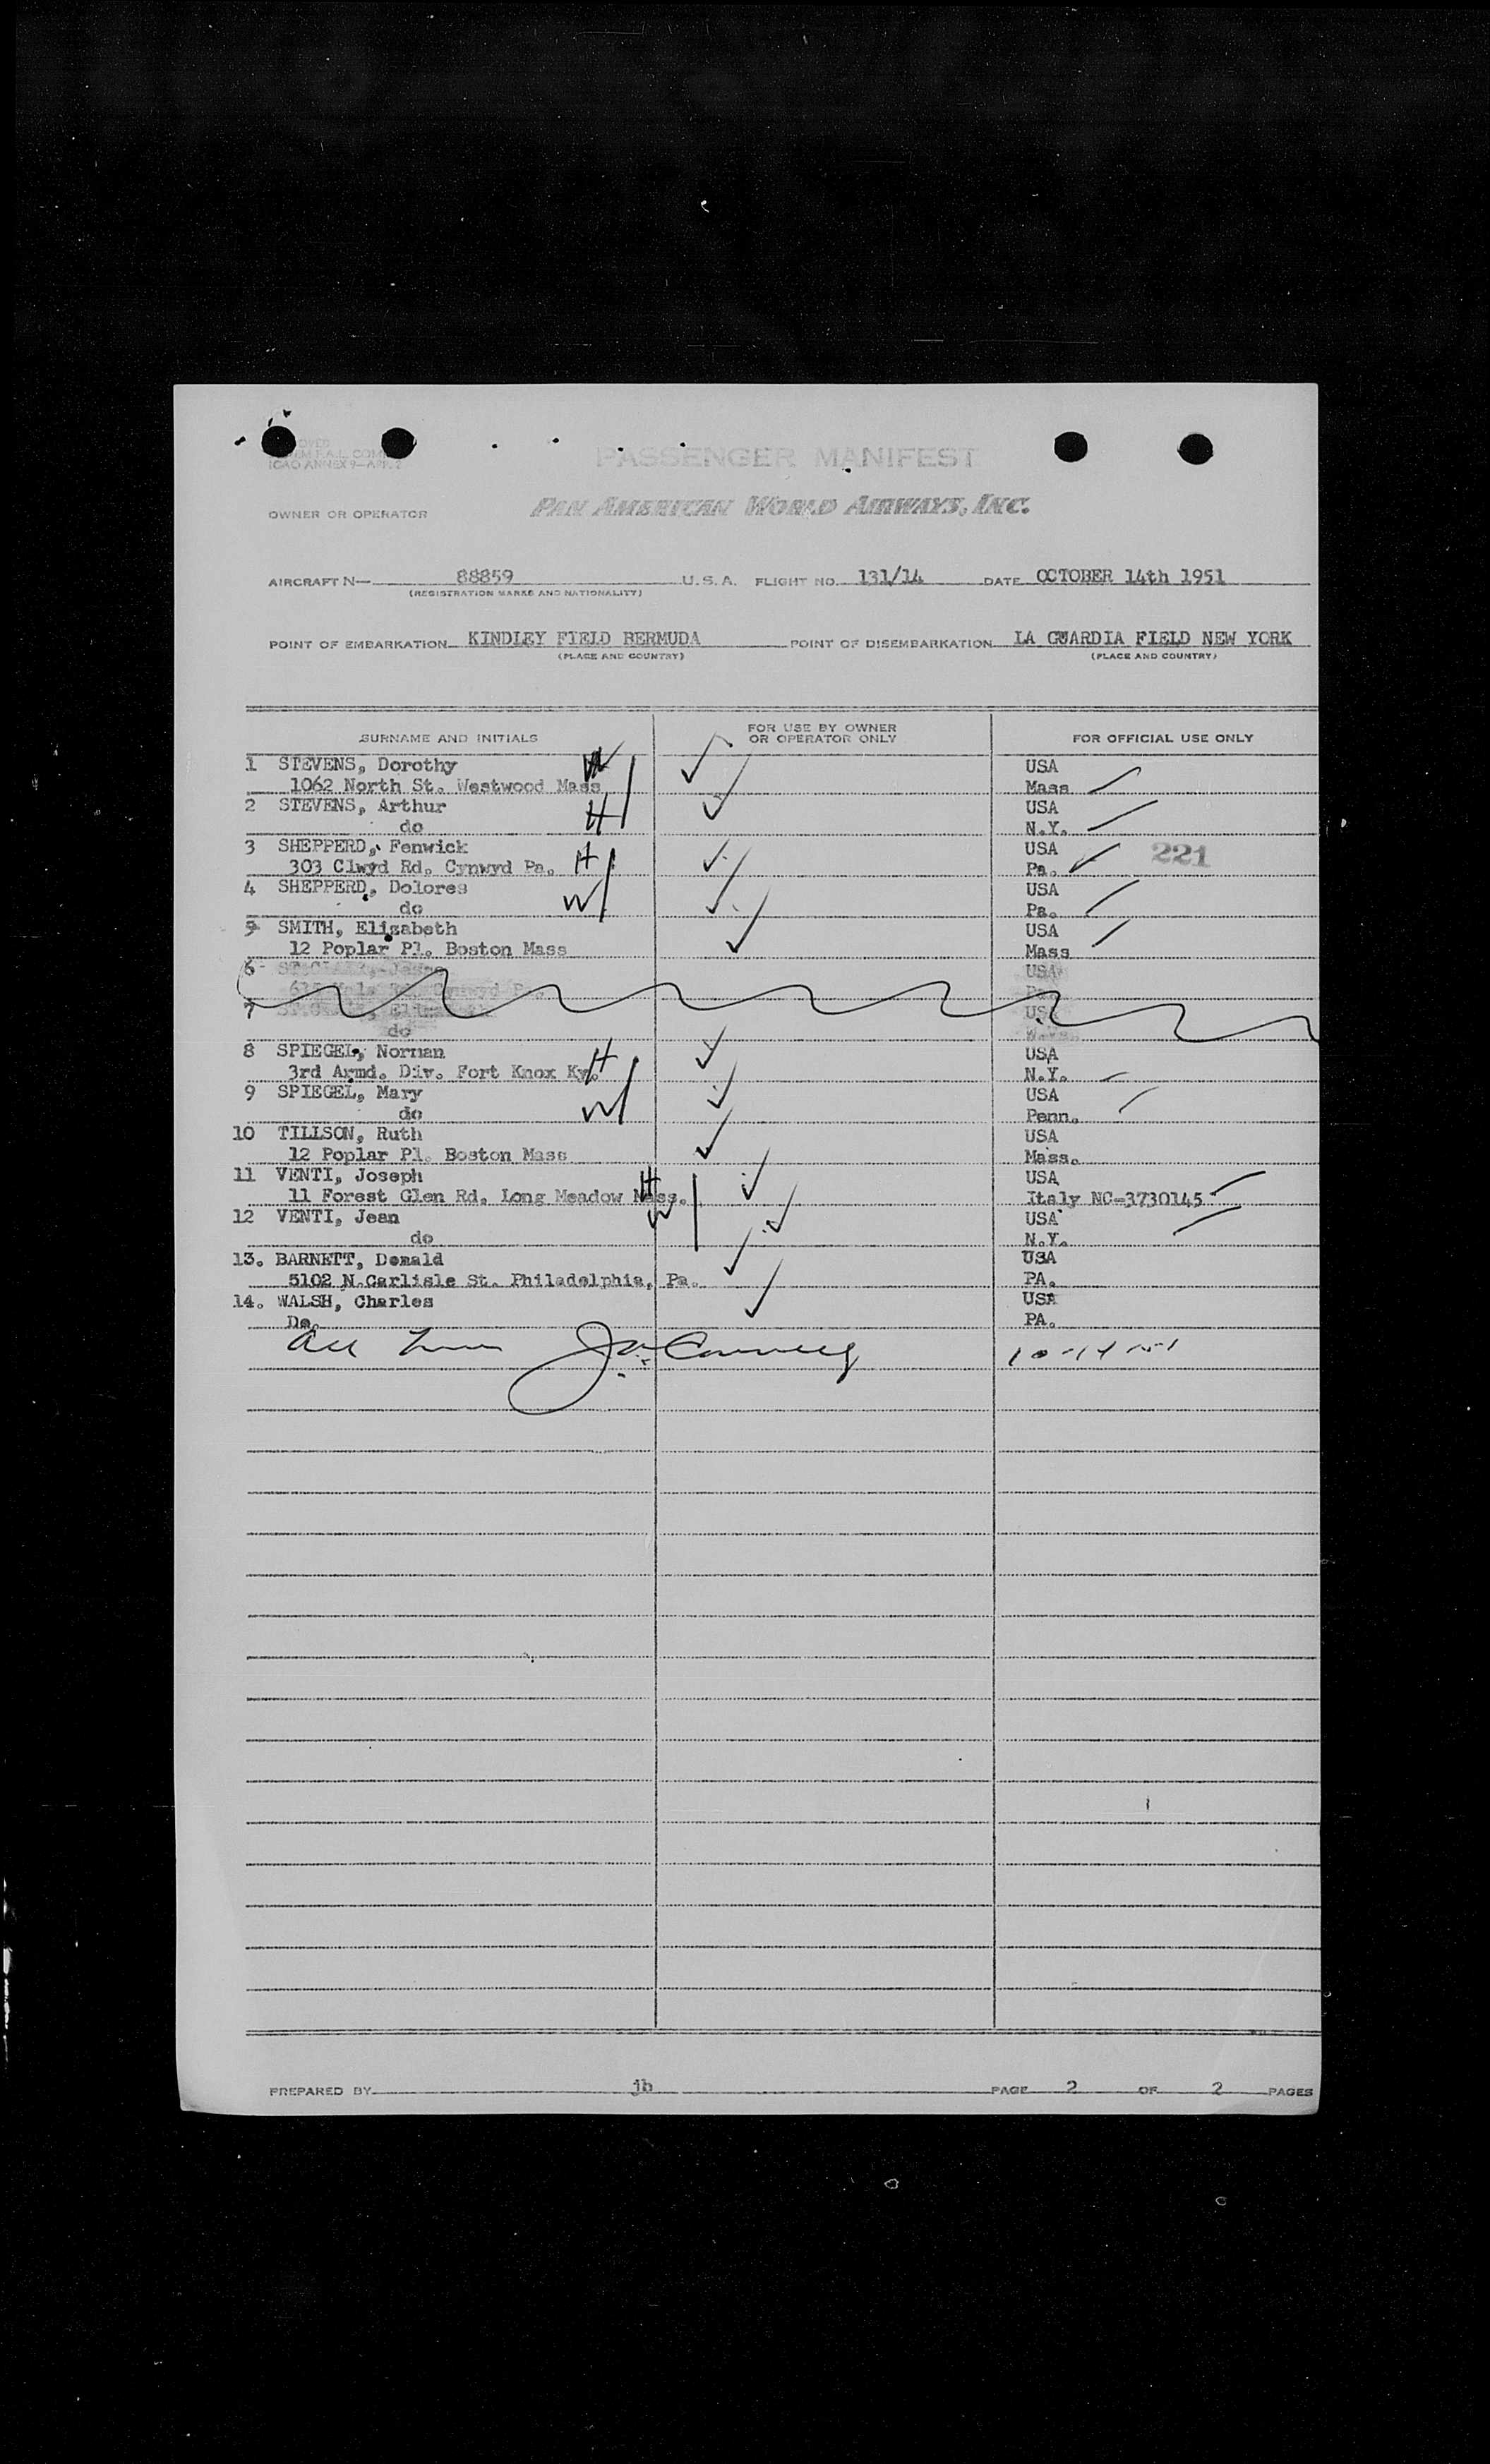 ICAO ANNEX 9—APP. 2
PASSENGER MANIFEST
OWNER OR OPERATOR PAN AMERICAN WORLD AIRWAYS, INC.
AIRCRAFT N— 88859 U.S.A. FLIGHT NO. 131/14 DATE OCTOBER 14th 1951
(REGISTRATION MARKS AND NATIONALITY)
POINT OF EMBARKATION KINDLEY FIELD BERMUDA POINT OF DISEMBARKATION LA GUARDIA FIELD NEW YORK
(PLACE AND COUNTRY) (PLACE AND COUNTRY)
SURNAME AND INITIALS FOR USE BY OWNER OR OPERATOR ONLY FOR OFFICIAL USE ONLY
1 STEVENS, Dorothy W USA
1062 North St. Westwood Mass Mass
2 STEVENS, Arthur H USA
do N.Y.
3 SHEPPERD, Fenwick USA 221
303 Clwyd Rd. Cynwyd Pa. H Pa.
4 SHEPPERD, Dolores W USA
do Pa.
5 SMITH, Elizabeth USA
12 Poplar Pl. Boston Mass Mass
6 USA
7 USA
do
8 SPIEGEL, Norman H USA
3rd Armd. Div. Fort Knox Ky. N.Y.
9 SPIEGEL, Mary W USA
do Penn.
10 TILLSON, Ruth USA
12 Poplar Pl. Boston Mass Mass.
11 VENTI, Joseph H USA
11 Forest Glen Rd. Long Meadow Mass. Italy NC-3730145
12 VENTI, Jean W USA
do N.Y.
13. BARNETT, Donald USA
5102 N.Carlisle St. Philadelphia, Pa. PA.
14. WALSH, Charles USA
Do. PA.
All 10-14-51
PREPARED BY jb PAGE 2 OF 2 PAGES